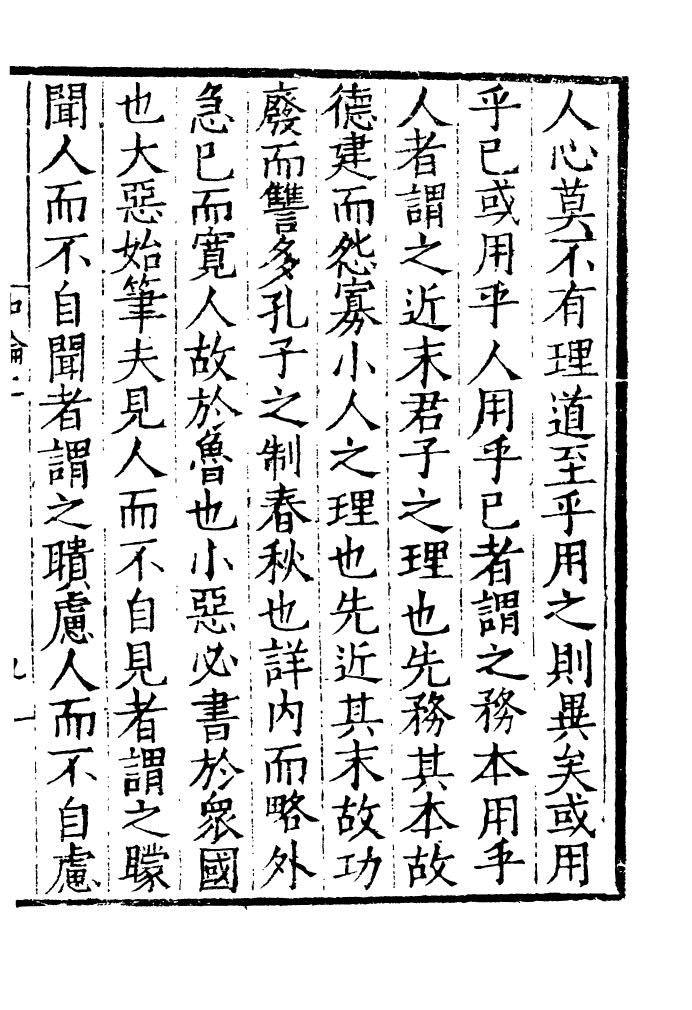 人心莫不有理道至乎用之則異矣或用
乎已或用乎人用乎已者謂之務本用乎
人者謂之近末君子之理也先務其本故
德建而怨寡小人之理也先近其末故功
廢而讐多孔子之制春秋也詳内而略外
急已而寛人故於魯也小惡必書於衆國
也大惡始筆夫見人而不自見者謂之矇
聞人而不自聞者謂之聵慮人而不自慮